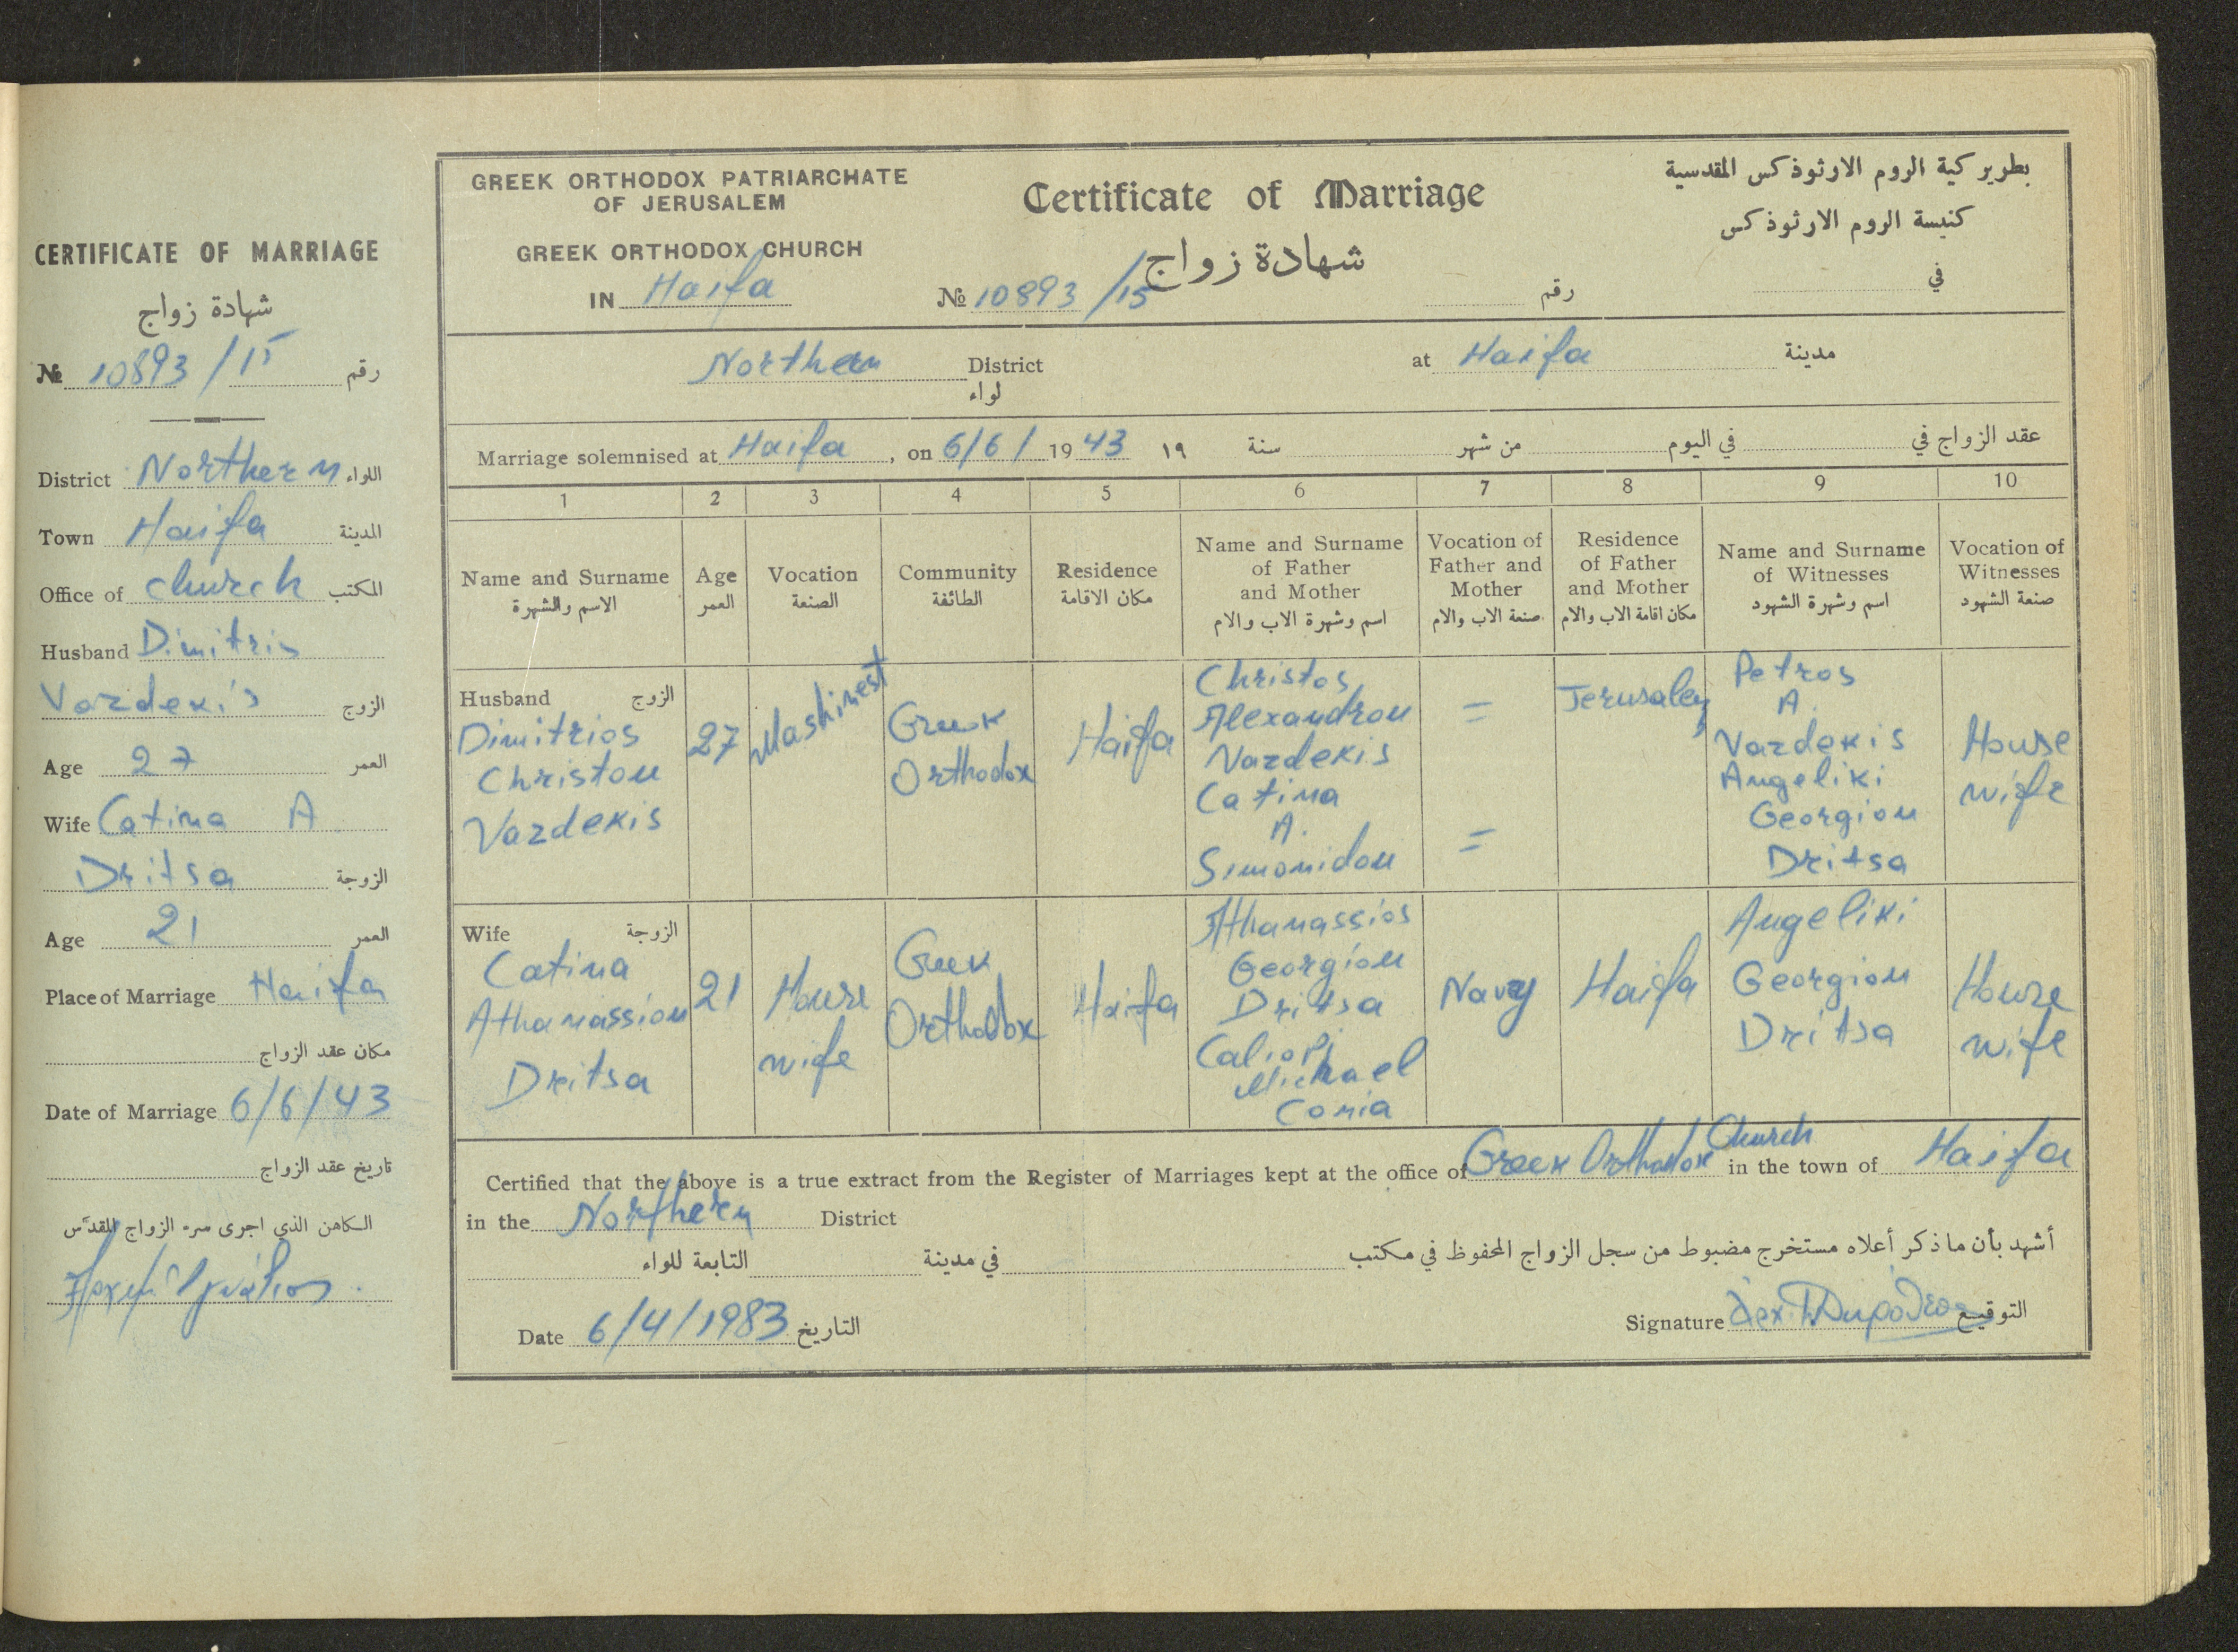 CERTIFICATE OF MARRIAGE
شهادة زواج
№ 10893/15 رقم
District Northern اللواء
Town Haifa المدينة
Office of church المكتب
Husband Dimitris
Vardekis الزوج
Age 27 العمر
Wife Catina A
Dritsa الزوجة
Age 21 العمر
Place of Marriage Haifa
مكان عقد الزواج
Date of Marriage 6/6/43
تاريخ عقد الزواج
الكاهن الذي اجرى سر الزواج المقدس
GREEK ORTHODOX PATRIARCHATE
OF JERUSALEM
GREEK ORTHODOX CHURCH
IN Haifa
Certificate of Marriage
شهادة زواج
№ 10893/15 رقم
بطريركية الروم الارثوذكس المقدسية
كنيسة الروم الارثوذكس
في
Northern District at Haifa مدينة
لواء
Marriage solemnised at Haifa, on 6/6/ 1943 ١٩ سنة من شهر في اليوم عقد الزواج في
1 2 3 4 5 6 7 8 9 10
Name and Surname
الاسم والشهرة
Age
العمر
Vocation
الصنعة
Community
الطائفة
Residence
مكان الاقامة
Name and Surname
of Father
and Mother
اسم وشهرة الاب والام
Vocation of
Father and
Mother
صنعة الاب والام
Residence
of Father
and Mother
مكان اقامة الاب والام
Name and Surname
of Witnesses
اسم وشهرة الشهود
Vocation of
Witnesses
صنعة الشهود
Husband الزوج
Dimitrios
Christou
Vardekis
27
Mashinest
Greek
Orthodox
Haifa
Christos
Alexandrou
Vardekis
Catina
A.
Simonidou
=
=
Jerusalem
Petros
A.
Vardekis
Angeliki
Georgiou
Dritsa
House
wife
Wife الزوجة
Catina
Athanassiou
Dritsa
21
House
wife
Greek
Orthodox
Haifa
Athanassios
Georgiou
Dritsa
Caliopi
Michael
Conia
Navy
Haifa
Angeliki
Georgiou
Dritsa
House
wife
Certified that the above is a true extract from the Register of Marriages kept at the office of Greek Orthodox Church in the town of Haifa
in the Northern District
أشهد بأن ما ذكر أعلاه مستخرج مضبوط من سجل الزواج المحفوظ في مكتب في مدينة التابعة للواء
Date 6/4/1983 التاريخ
Signature التوقيع